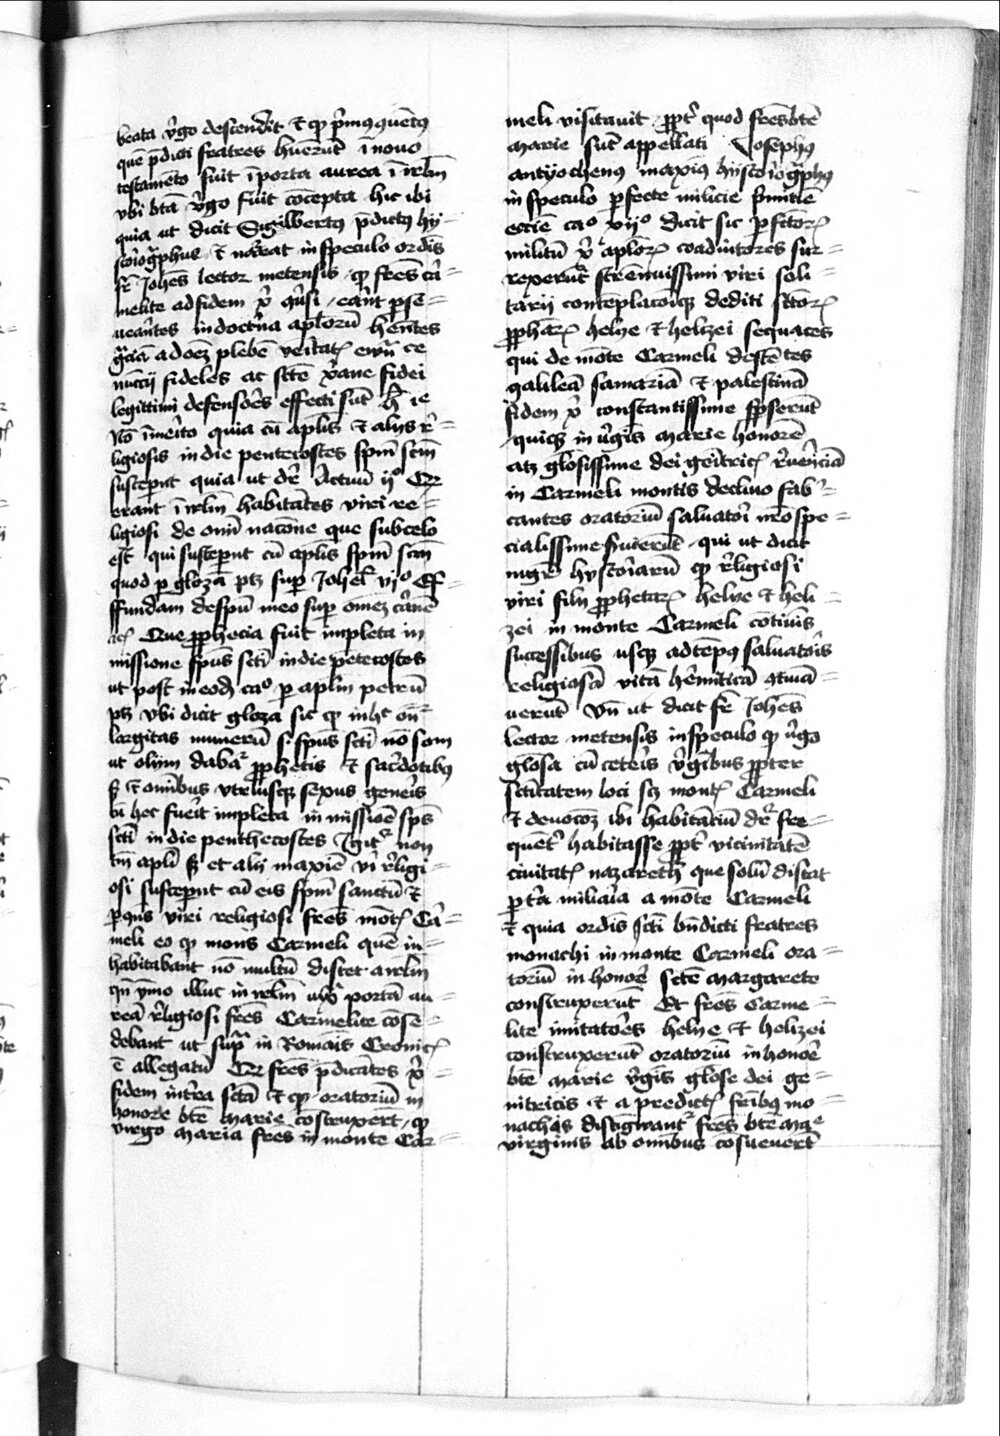 beata v̄go descendit ⁊ qp p̄mꝯ ꝯuētꝯ
quē p̄dicti fratres hūerūt ī nouo
testamēto fuit ī porta aurea ī ir̄lm̄
vbi btā v̄go fuit cōcepta hic ibi
quia ut dicit Sigilbertus p̄dictꝯ hy=
⁊ narrat in speculo ordīs
fr̄ Joh̄es lector metensis qp fr̄es car=
melite ad fidem xp̄i ꝯu̓si erāt pse=
ueātes in doctrīa aplorū h̄entes
gr̄aia ad oēz plebē ce
nutrij fideles ac scte xp̄ane fidei
legittimi defensōes effecti sūt h̓ ie
nō īmeito quia cū aplīs ⁊ alijs r̓=
ligiosis in die penthecostes spm̄ scm̄
susceper̄nt quia ut dr̄ Actuū ijº
erant ī ir̄lm̄ habitātes viri re=
ligiosi de om̄i nacōne que sub celo
est qui susceper̄nt cū aplīs spm̄ scm̄
quod p glozā ptꝫ sup̄ Johel̄ ijº Ef=
ffundam de spū meo sup̄ omēz carnē
Que ꝓphecia fuit impleta in
missione spūs sctī in die petecostes
ut post in eodꝫ caº p aplm̄ petrū
ptꝫ vbi dicit gloza sic qp in hc
largitas munerū s. spūs sctī nō som
ut olim dabar̄ ꝓphetis ⁊ sac̄dotibꝯ
sꝫ ⁊ om̄ibus vtriusqꝫ sexus genēis
hec fuēit impleta in missiōe spūs
sctī in die penthecostes Igitʳ non
tm̄ aplī sꝫ et alij maxiē viri r̓ligi=
osi susceper̄nt cū eis spm̄ sanctū ⁊
viri religiosi fr̄es mōtꝭ Car=
meli eo qp mons Carmeli quē in=
habitabant nō multū distet a ir̄lm̄
ymo illuc in ir̄lm̄ portā au=
reā r̓ligiosi fr̄es Carmelite cōsē=
debant ut supᵃ in Romāis Cronicꝭ
ē allegatū fr̄es p̄dicātes xp̄i=
fidem int̓ea sctā ⁊ qp oratoriū in
honore btē Marie costruxer̄t qp
virgo Maria fr̄es in monte Car=
meli visitauit ꝓpt̓ quod fr̄es btē
Marie sūt appellati Josephꝯ
antyochenꝯ maxīꝯ hystoiogᵃphꝯ
in speculo pfecte milicie p̄mitie
ecc̄ie caº xijº dicit sic pfectorꝫ
militū xp̄i aplōrꝫ coadiutores sur=
rexerūt strēnuissimi viri soli=
tarij conteplacōiqꝫ dediti sctōrꝫ
ꝓphārꝫ helye ⁊ helizei sequaces
qui de mōte Carmeli descētes
galileā samariā ⁊ palestinā
fidem xp̄i constantissime sꝑserūt
quiqꝫ in v̓gis Marie honorē
atqꝫ glōsissime dei genitricꝭ r̓uerēciā
in Carmeli montis decliuo fabʳ=
cantes oratoriū saluatoi nr̄o spe=
cialissime fuerūt qui ut dicit
mgr̄ hystoiarū qp r̓ligiosi
viri filij ꝓphetarꝫ helye ⁊ heli=
zei in monte Carmeli cōtiuīs
successibus usqꝫ ad tēpꝯ saluatois
religiosā vitā h̓emiticā ꝯtinua=
uerūt Vn̄ ut dicit fr̄ Joh̄es
lector metensis in speculo qp v̓go
glōsa cū ceteis v̓gībus ꝓpter
sctītatem loci scꝫ montꝭ Carmeli
⁊ deuocōꝫ ibi habitātiū dr̄ fre=
quēt̓ habitasse ꝓpt̓ vicinitatē
ciuitatꝭ nazareth̄ que solū distat
p tria miliaria a mōte Carmeli
⁊ quia ordīs sctī bn̄dicti fratres
monachi in monte Carmeli ora=
toriū in honoē sctē Margarete
construxerūt Et fr̄es Carme=
lite imitatoēs helye ⁊ helizei
construxerūt oratoriū in honoē
btē Marie v̓gis glōse dei ge=
nitricis ⁊ a predictꝭ fr̄ibꝯ mo=
nachis distīgwantʳ fr̄es btē Mᵉ
virginis ab omībus cosueuert̄